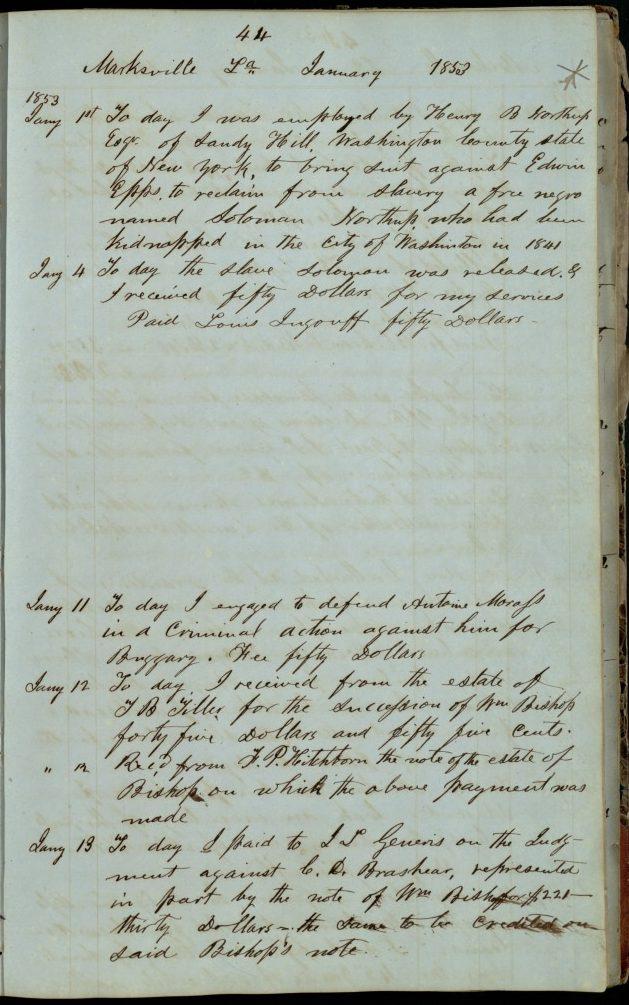 44
Marksville La January 1853
1853
Jany 1st To day I was employed by Henry B Northup
Esqr. of Sandy Hill, Washington County state
of New York, to bring suit against Edwin
Epps, to reclaim from slavery a free negro
named Soloman Northup, who had been
kidnapped in the city of Washinton in 1841
Jany 4 To day the slave Soloman was released. &
I received fifty Dollars for my services
Paid Louis Ingouff fifty Dollars -
Jany 11 To day I engaged to defend Antoine Morass
in a Criminal action against him for
Buggary. Fee fifty Dollars
Jany 12 To day I received from the estate of
for the Succession of Wm Bishop
forty five Dollars and fifty five cents.
" 12 Rec'd from F. P. Hitchborn the note of the estate of
Bishop on which the above payment was
made
Jany 13 To day I paid to Generis on the Judg-
ment against C. D. Brashear, represented
in part by the note of Wm Bishop for $221
thirty Dollars - the same to be credited on
said Bishop's note.